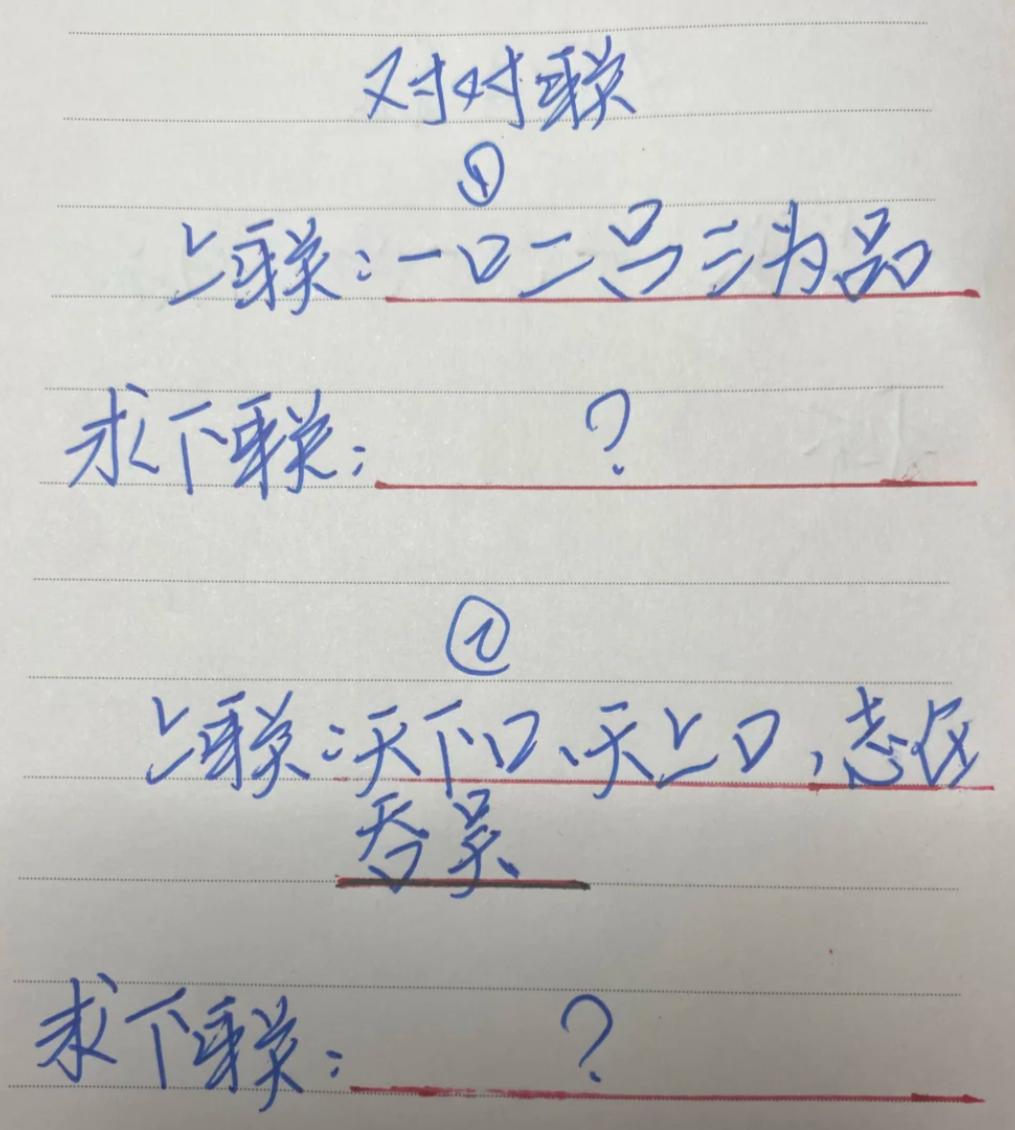 对对联
①
上联:一口二吕三为品
求下联: ?
②
上联:天下口、天上口,志在
吞吴
求下联: ?